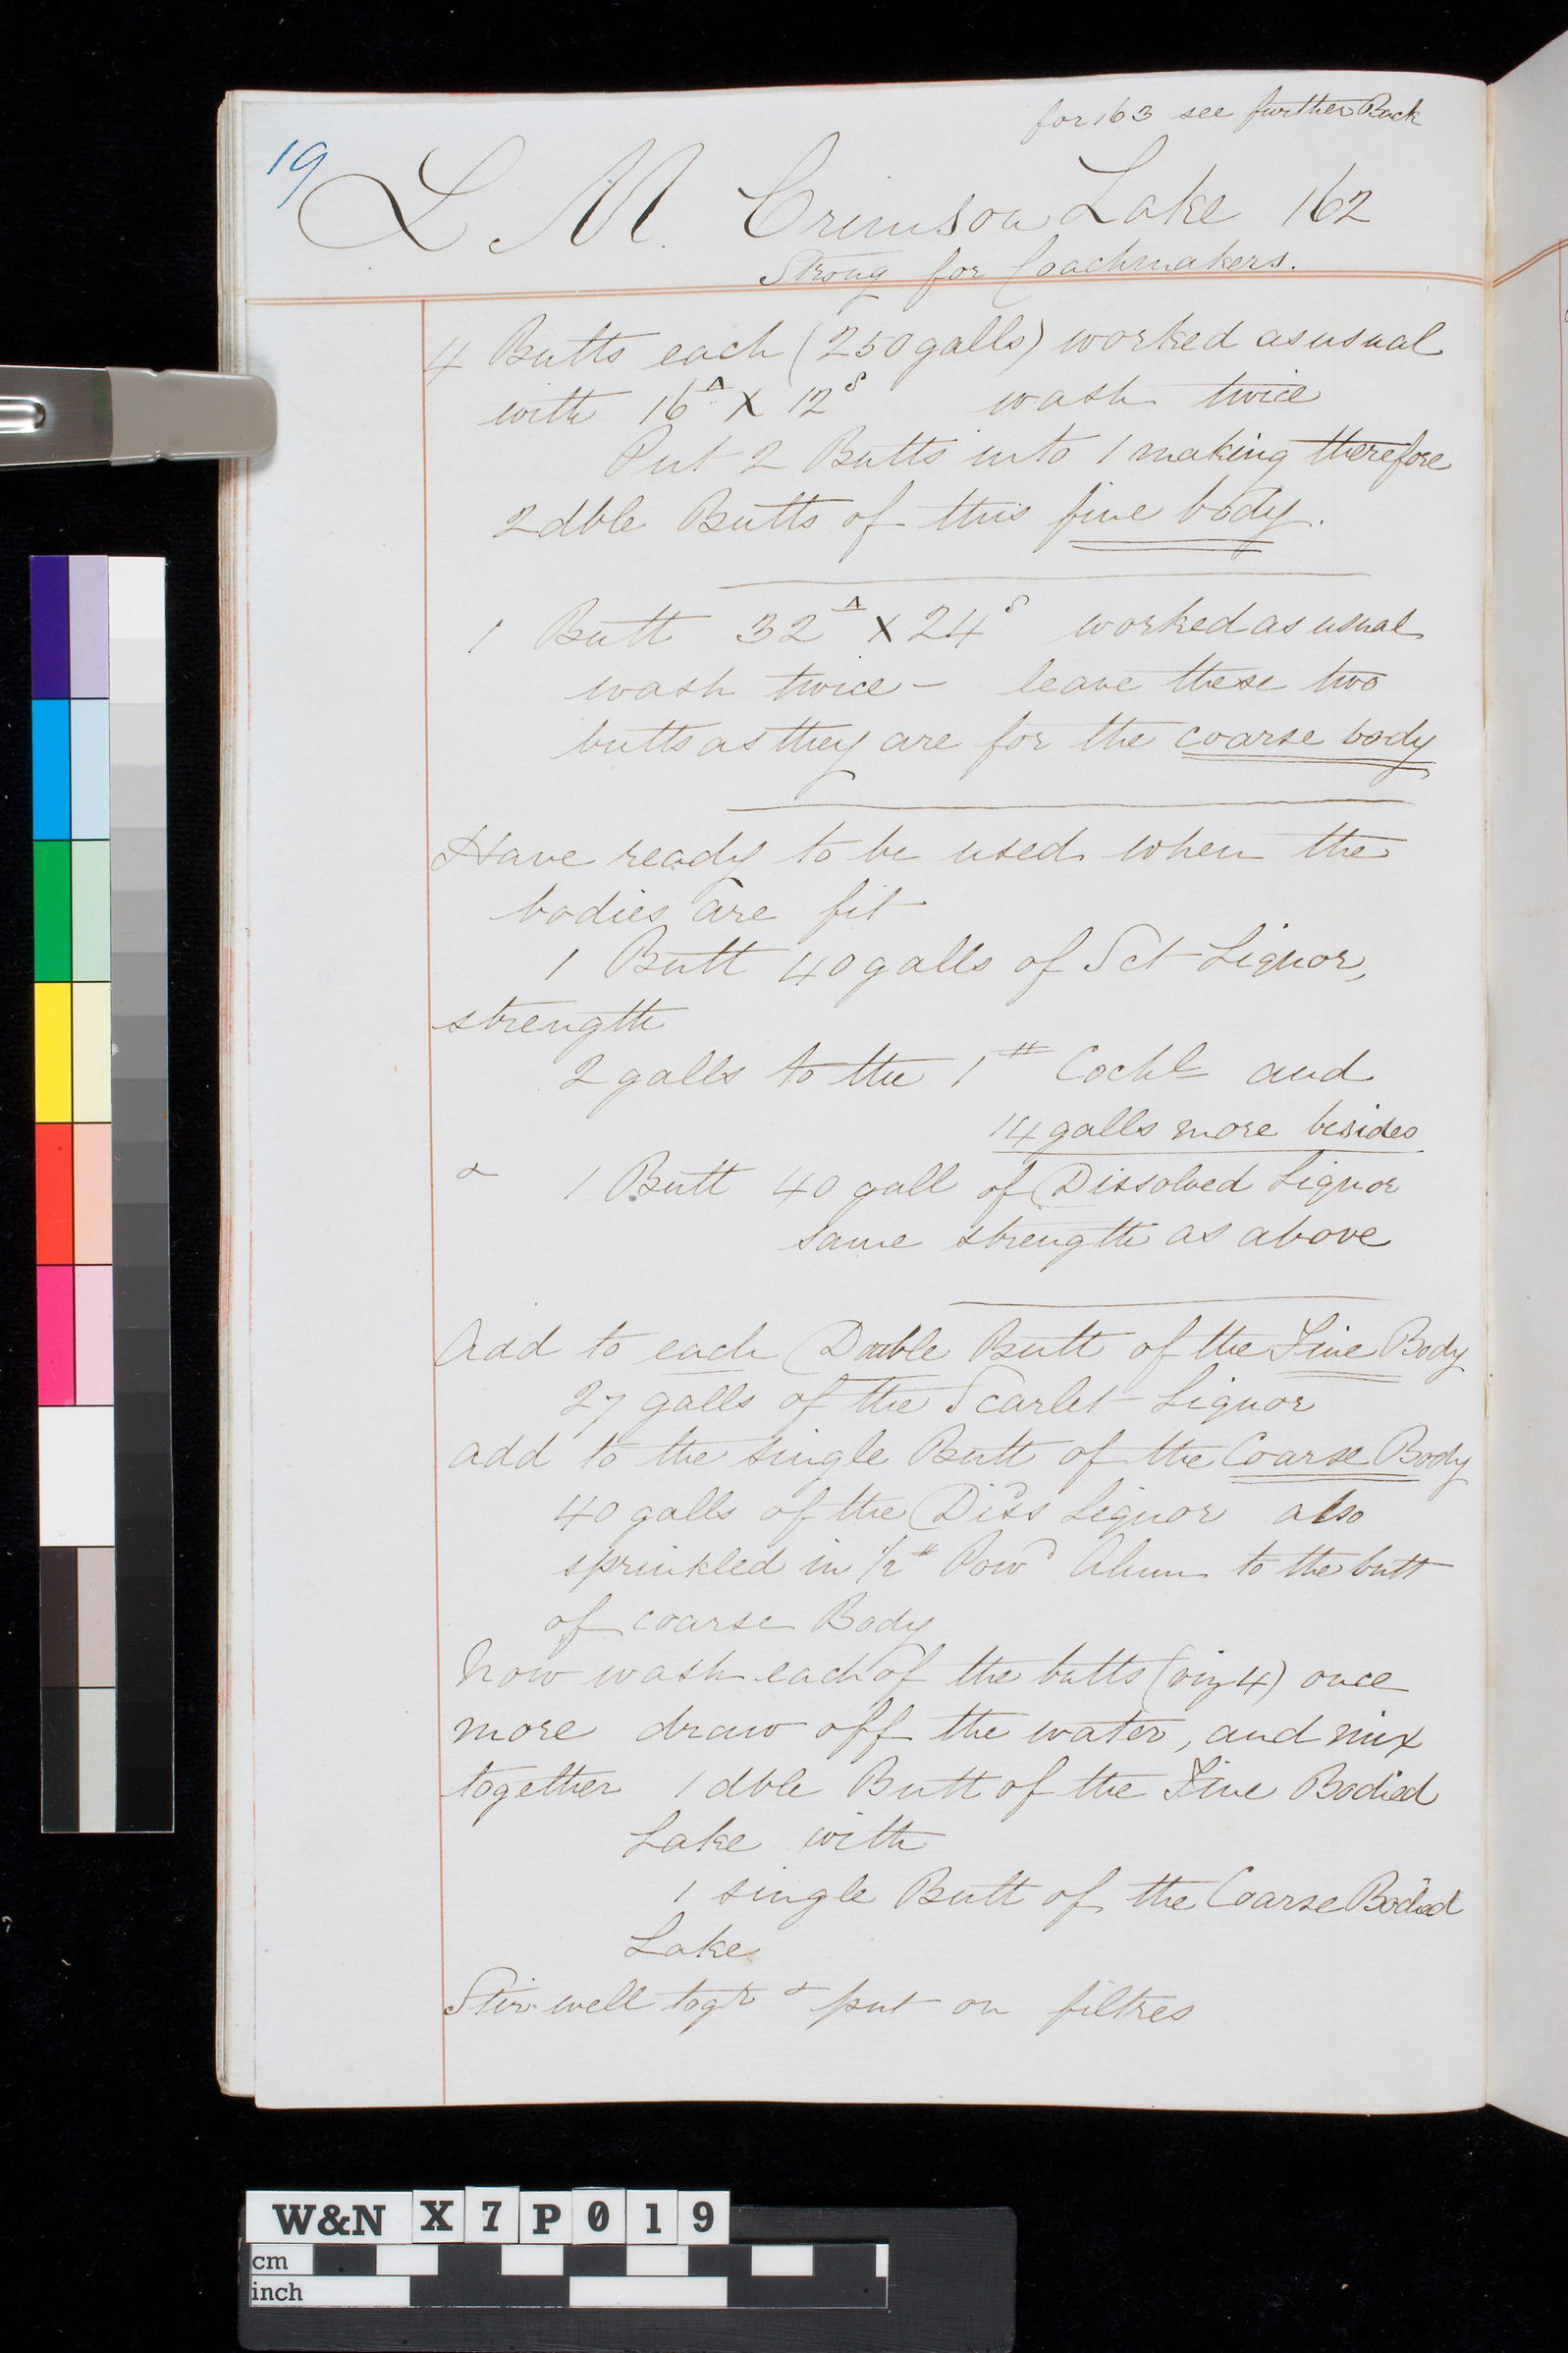 for 163 see further Back
19
L M. Crimson Lake 162
Strong for Coachmakers.
4 Butts each (250 galls) worked as usual
with 16 A X 12 S wash twice
Put 2 Butts into 1 making therefore
2 dble Butts of this fine body.
1 Butt 32 A X 24 S worked as usual
wash twice - leave these two
butts as they are for the coarse body
Have ready to be used when the
bodies are fit
1 Butt 40 galls of Sct Liquor,
strength
2 galls to the 1 # Cochl and
14 galls more besides
& 1 Butt 40 gall of Dissolved Liquor
same strength as above
Add to each Double Butt of the Fine Body
27 galls of the Scarlet Liquor
add to the single Butt of the Coarse Body
40 galls of the Dissd Liquor also
sprinkled in 1/2 # Powd Alum to the butt
of coarse Body
Now wash each of the butts (viz 4) once
more draw off the water, and mix
together 1 dble Butt of the Fine Bodied
Lake with
1 single Butt of the Coarse Bodied
Lake
Stir well togr & put on filtres
W&N X 7 P 0 1 9
cm
inch